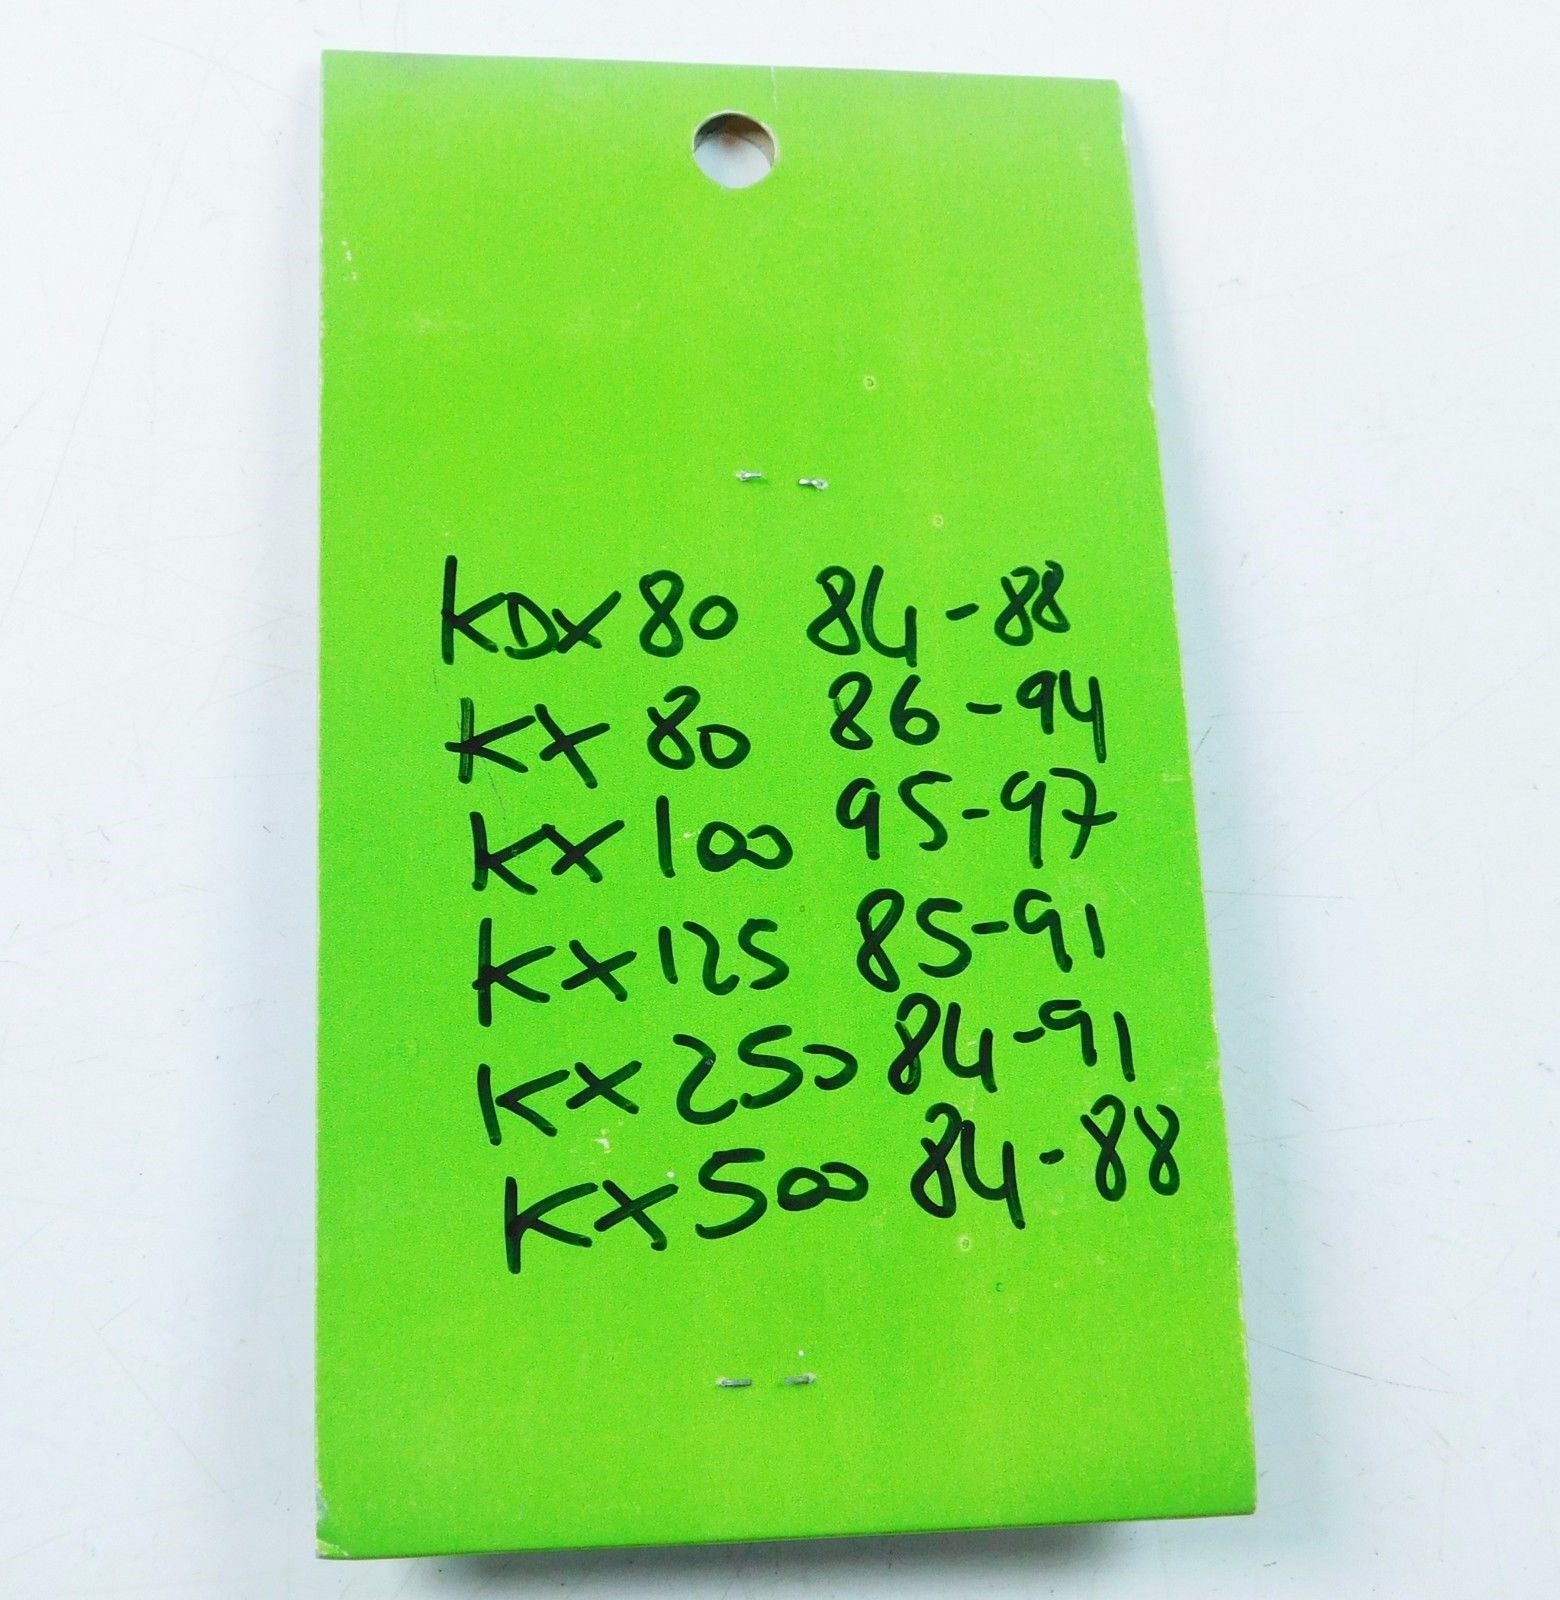 KDX 80 84-88
KX 80 86-94
KX 100 95-97
KX 125 85-91
KX 250 84-91
KX 500 84-88